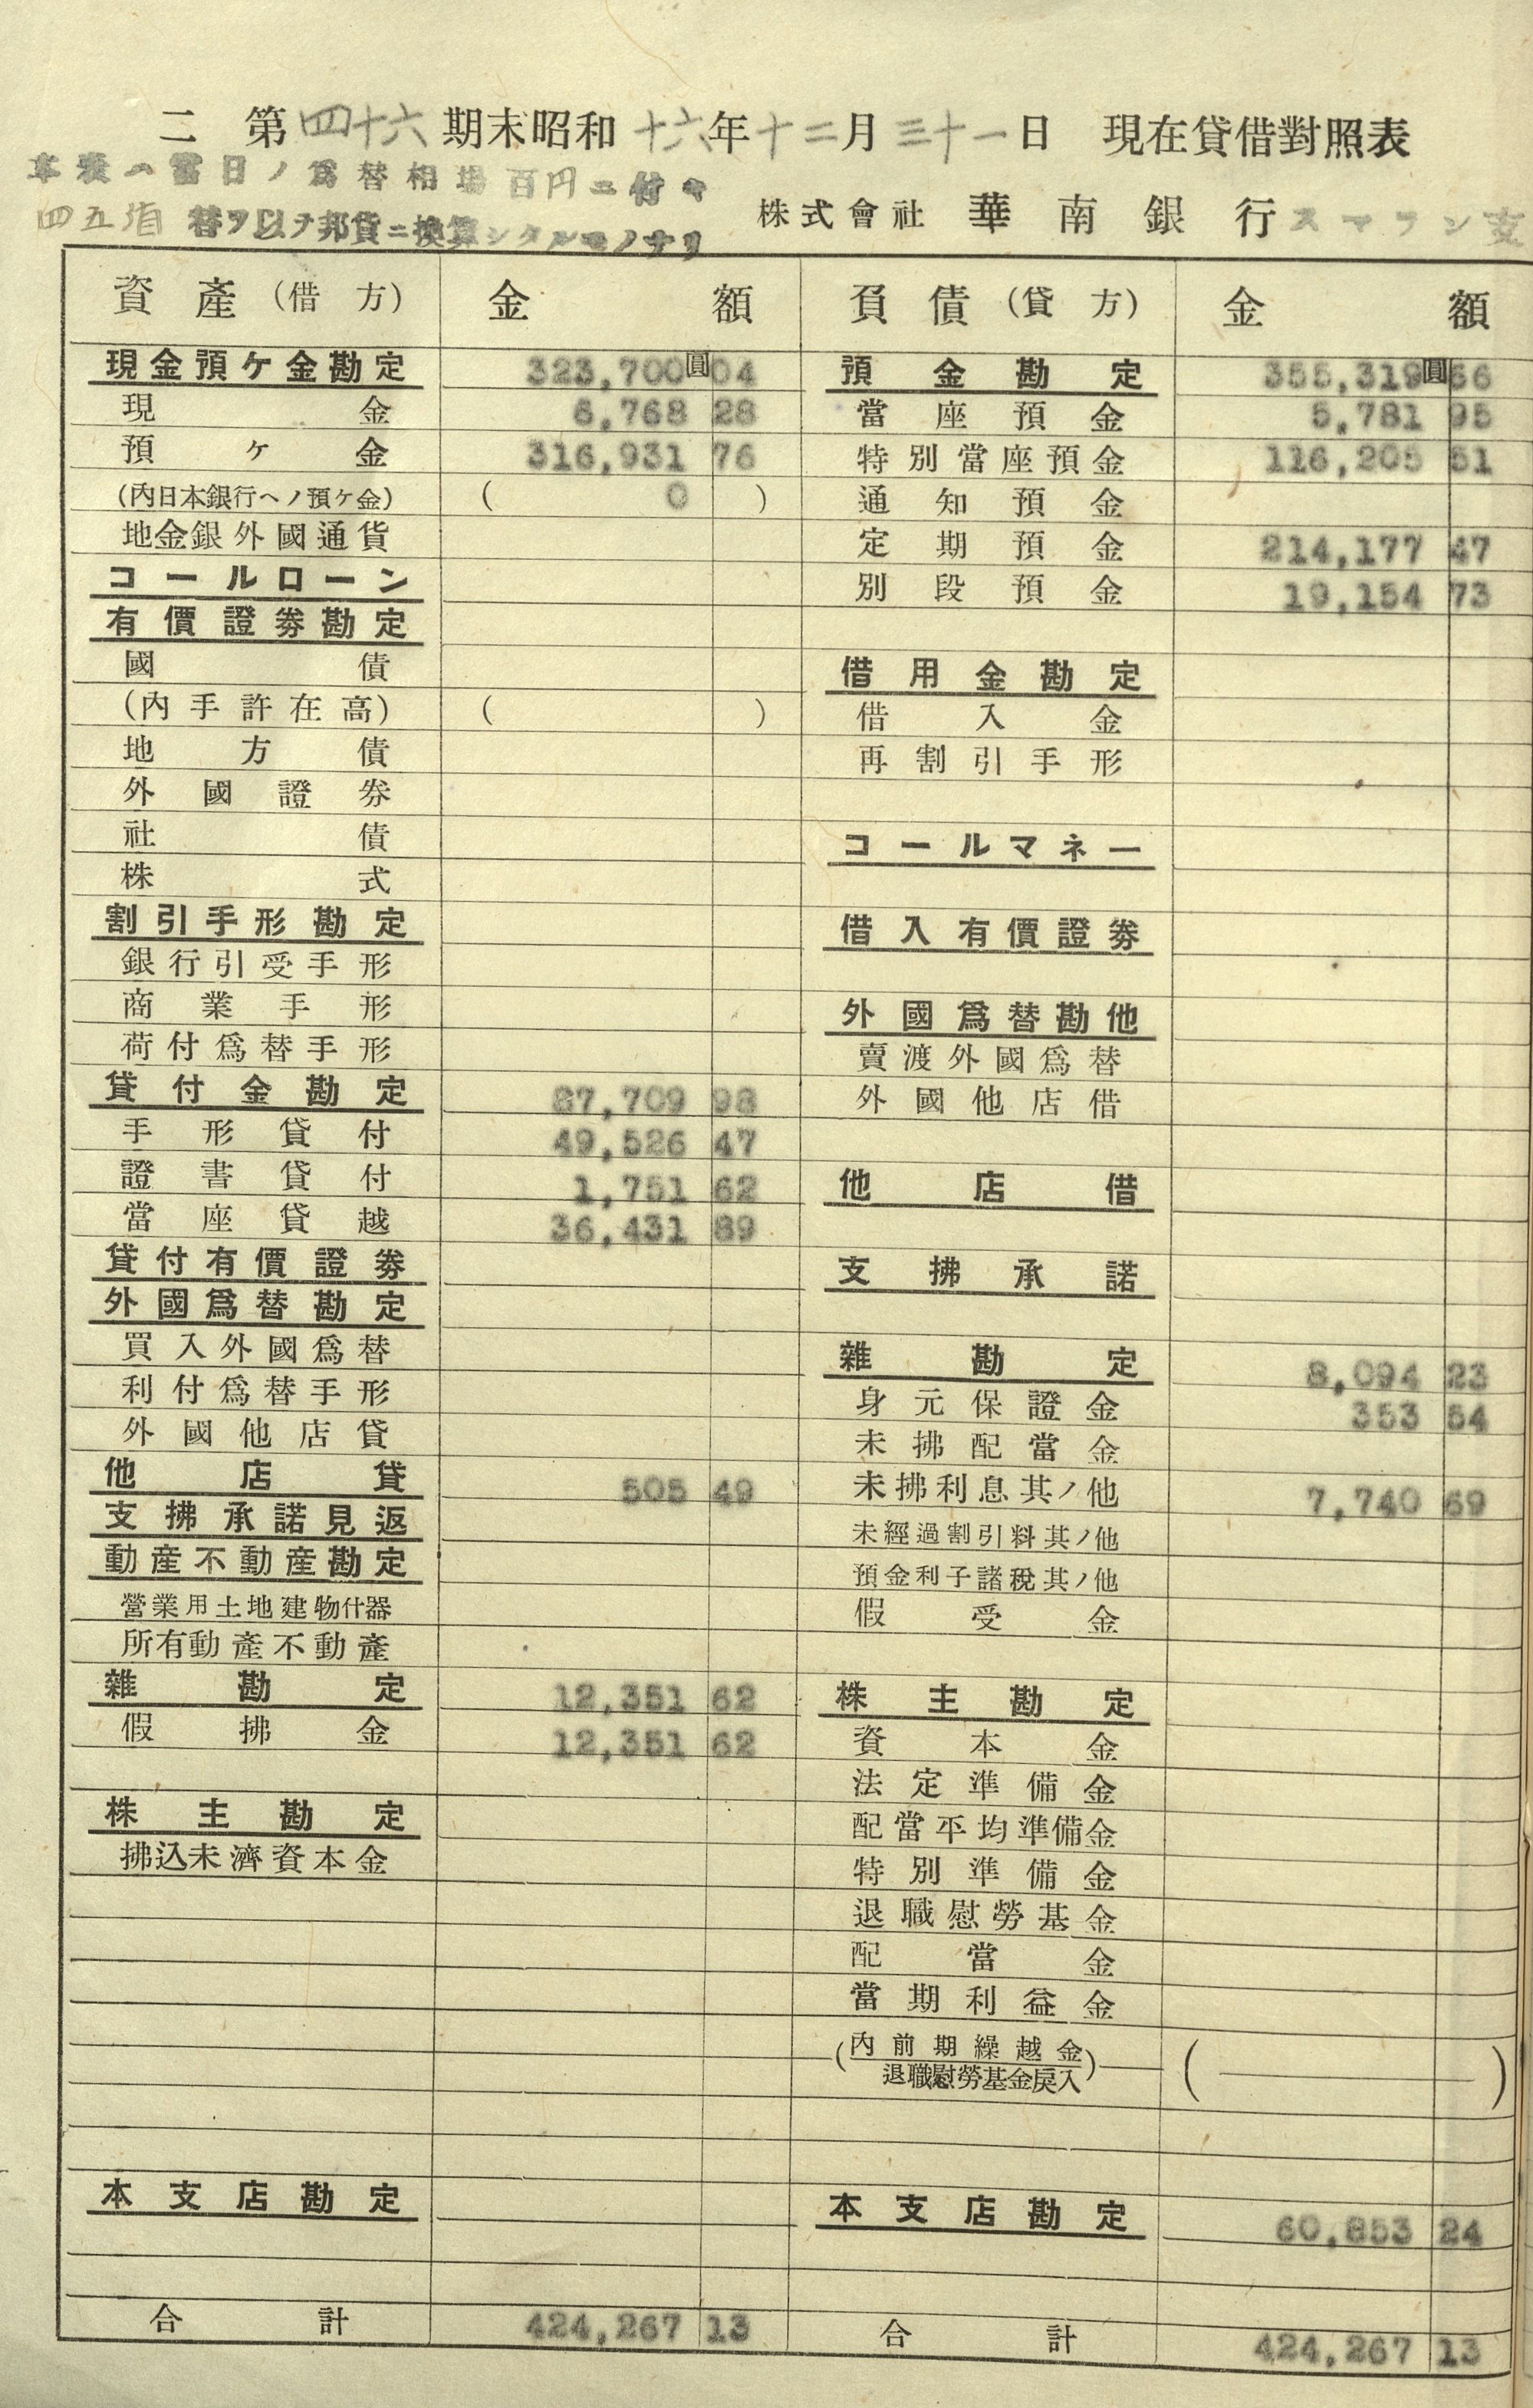 二 第四十六期末昭和十六年十二月三十一日 現在貸借對照表
本表ハ當日ノ爲替相場百円ニ付キ
四五 替ヲ以テ邦貨ニ換算シタルモノナリ
株式會社 華南銀行スマラン支
資產(借方) 金額 負債(貸方) 金額
現金預ケ金勘定 323,700圓04 預金勘定 355,319圓66
現金 6,768 28 當座預金 5,781 95
預ケ金 316,931 76 特別當座預金 116,205 51
(內日本銀行ヘノ預ケ金) ( 0 ) 通知預金
地金銀外國通貨 定期預金 214,177 47
コールローン 別段預金 19,154 73
有價證劵勘定
國債 借用金勘定
(內手許在高) ( ) 借入金
地方債 再割引手形
外國證券
社債 コールマネー
株式
割引手形勘定 借入有價證劵
銀行引受手形
商業手形 外國爲替勘他
荷付爲替手形 賣渡外國爲替
貸付金勘定 87,709 98 外國他店借
手形貸付 49,526 47
證書貸付 1,751 62 他店借
當座貸越 36,431 89
貸付有價證劵 支拂承諾
外國爲替勘定
買入外國爲替 雜勘定 8,094 23
利付爲替手形 身元保證金 353 54
外國他店貸 未拂配當金
他店貸 505 49 未拂利息其ノ他 7,740 69
支拂承諾見返 未經過割引料其ノ他
動産不動産勘定 預金利子諸稅其ノ他
營業用土地建物什器 假受金
所有動產不動產
雜勘定 12,351 62 株主勘定
假拂金 12,351 62 資本金
法定準備金
株主勘定 配當平均準備金
拂込未濟資本金 特別準備金
退職慰勞基金
配當金
當期利益金
(內前期繰越金 退職慰勞基金戾入) ( )
本支店勘定 本支店勘定 60,853 24
合計 424,267 13 合計 424,267 13